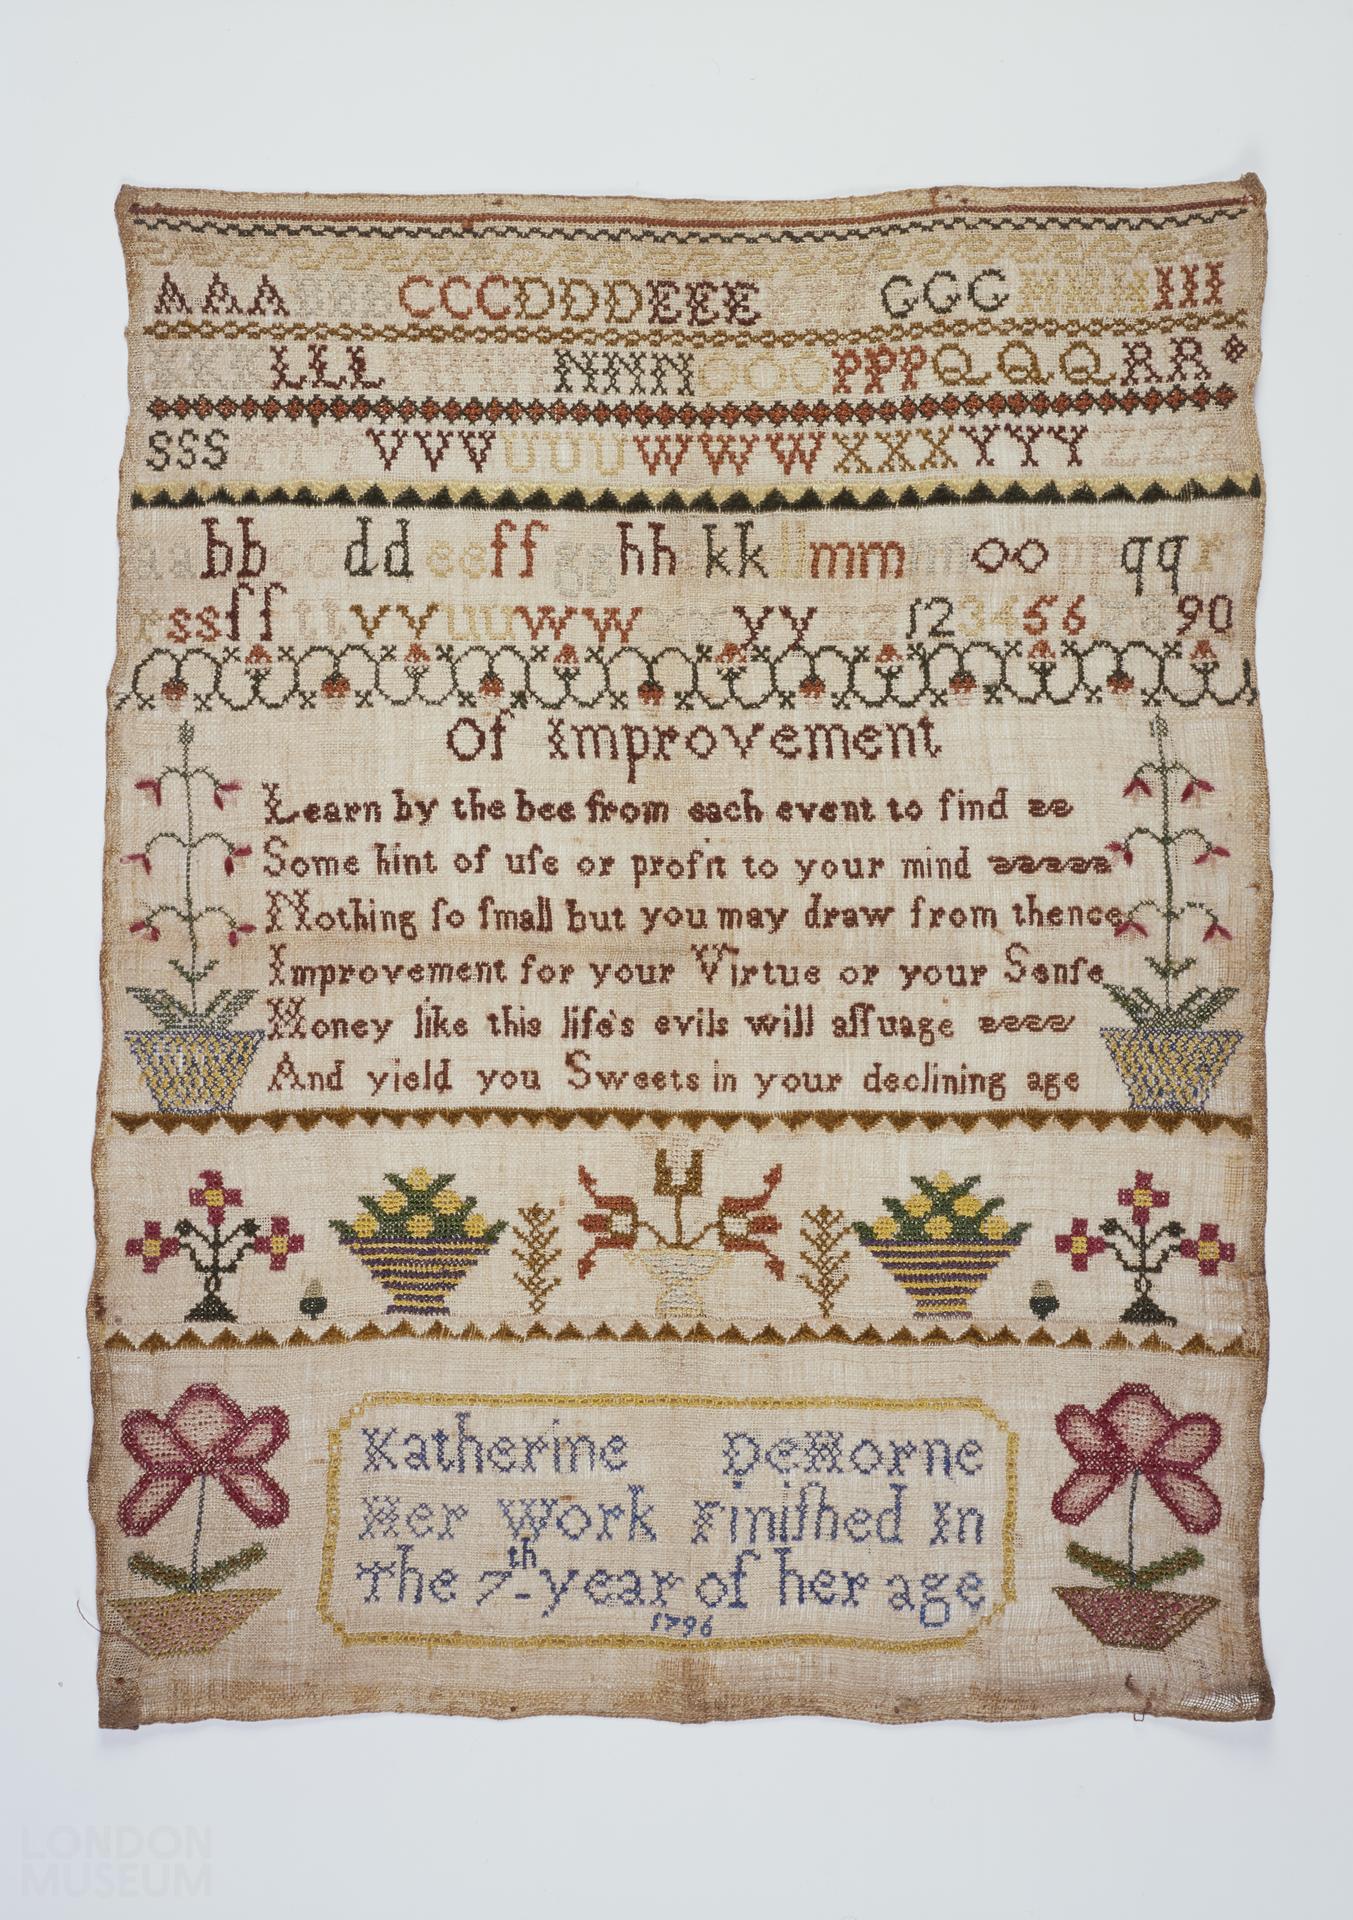 AAA BBB CCC DDD EEE GGG HHH III
KKK LLL MMM NNN OOO PPP QQQ RR
SSS TTT VVV UUU WWW XXX YYY ZZZ
aa bb cc dd ee ff gg hh kk ll mm nn oo pp qq r
r ss ſſ tt vv uu ww xx yy zz 1234567890
Of Improvement
Learn by the bee from each event to find
Some hint of uſe or profit to your mind
Nothing ſo ſmall but you may draw from thence
Improvement for your Virtue or your Senſe
Honey like this life's evils will aſſuage
And yield you Sweets in your declining age
Katherine DeHorne
Her Work Finiſhed In
The 7th year of her age
1796
LONDON
MUSEUM